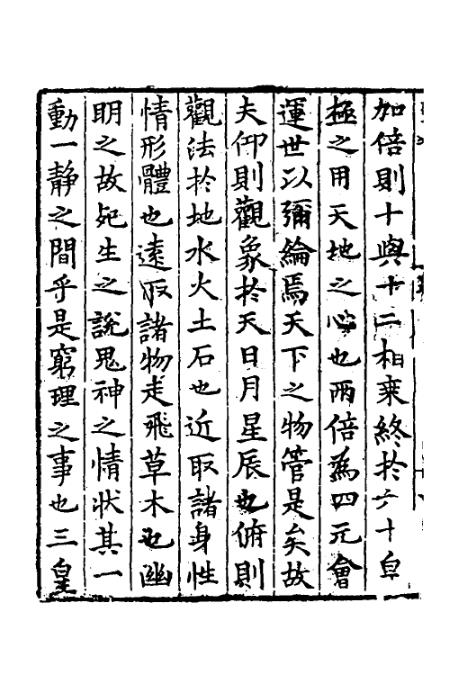 加倍則十與十二相乗終於六十皇
極之用天地之心也兩倍為四元會
運世以彌綸焉天下之物管是矣故
夫仰則觀象於天日月星辰也俯則
觀法於地水火土石也近取諸身性
情形體也遠取諸物走飛草木也幽
明之故死生之說鬼神之情狀其一
動一静之間乎是窮理之事也三皇